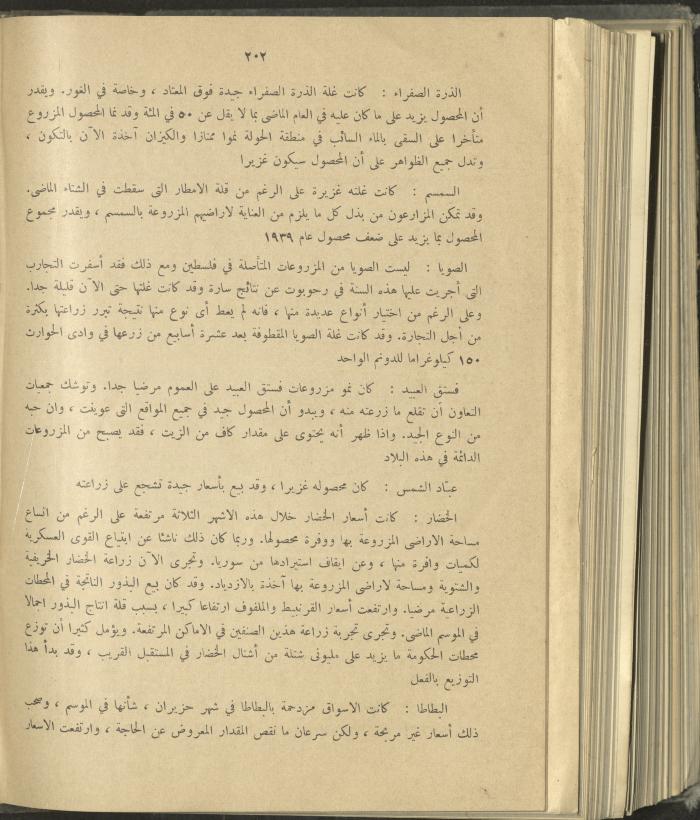 ٢٠٢
الذرة الصفراء : كانت غلة الذرة الصفراء جيدة فوق المعتاد ، وخاصة في الغور. ويقدر
أن المحصول يزيد على ما كان عليه في العام الماضى بما لا يقل عن ٥٠ في المئة وقد نما المحصول المزروع
متأخرا على السقى بالماء السائب في منطقة الحولة نموا ممتازا والكيزان آخذة الآن بالتكون ،
وتدل جميع الظواهر على أن المحصول سيكون غزيرا
السمسم : كانت غلته غزيرة على الرغم من قلة الامطار التى سقطت في الشتاء الماضى.
وقد تمكن المزارعون من بذل كل ما يلزم من العناية لاراضيهم المزروعة بالسمسم ، ويقدر مجموع
المحصول بما يزيد على ضعف محصول عام ١٩٣٩
الصويا : ليست الصويا من المزروعات المتأصلة في فلسطين ومع ذلك فقد أسفرت التجارب
التى أجريت عليها هذه السنة في رحوبوت عن نتائج سارة وقد كانت غلتها حتى الآن قليلة جدا.
وعلى الرغم من اختيار أنواع عديدة منها ، فانه لم يعط أى نوع منها نتيجة تبرر زراعتها بكثرة
من أجل التجارة. وقد كانت غلة الصويا المقطوفة بعد عشرة أسابيع من زرعها في وادى الحوارث
١٥٠ كيلوغراما للدونم الواحد
فستق العبيد : كان نمو مزروعات فستق العبيد على العموم مرضيا جدا. وتوشك جمعيات
التعاون أن تقلع ما زرعته منه ، ويبدو أن المحصول جيد في جميع المواقع التى عوينت ، وان حبه
من النوع الجيد. واذا ظهر أنه يحتوى على مقدار كاف من الزيت ، فقد يصبح من المزروعات
الدائمة في هذه البلاد
عبّاد الشمس : كان محصوله غزيرا ، وقد بيع بأسعار جيدة تشجع على زراعته
الخضار : كانت أسعار الخضار خلال هذه الاشهر الثلاثة مرتفعة على الرغم من اتساع
مساحة الاراضى المزروعة بها ووفرة محصولها. وربما كان ذلك ناشئا عن ابتياع القوى العسكرية
لكميات وافرة منها ، وعن ايقاف استيرادها من سوريا. وتجرى الآن زراعة الخضار الخريفية
والشتوية ومساحة لاراضى المزروعة بها آخذة بالازدياد. وقد كان بيع البذور الناتجة في المحطات
الزراعية مرضيا. وارتفعت أسعار القرنبيط والملفوف ارتفاعا كبيرا ، بسبب قلة انتاج البذور اجمالا
في الموسم الماضى. وتجرى تجربة زراعة هذين الصنفين في الاماكن المرتفعة. ويؤمل كثيرا أن توزع
محطات الحكومة ما يزيد على مليونى شتلة من أشتال الخضار في المستقبل القريب ، وقد بدأ هذا
التوزيع بالفعل
البطاطا : كانت الاسواق مزدحمة بالبطاطا في شهر حزيران ، شأنها في الموسم ، وصحب
ذلك أسعار غير مربحة ، ولكن سرعان ما نقص المقدار المعروض عن الحاجة ، وارتفعت الاسعار